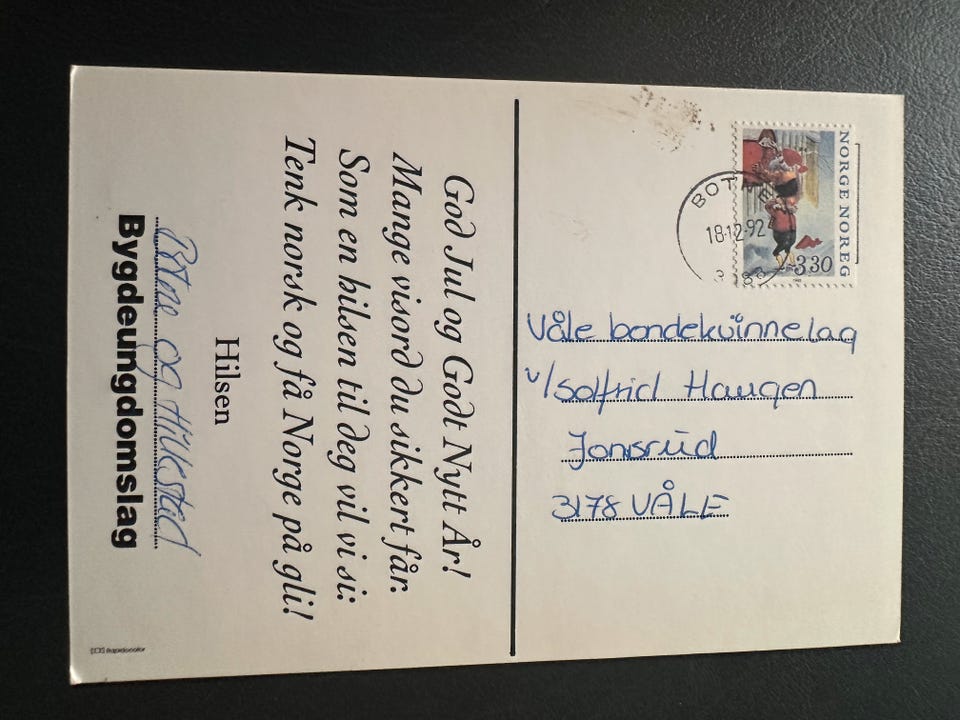 God Jul og Godt Nytt År!
Mange visord du sikkert får.
Som en hilsen til deg vil vi si:
Tenk norsk og få Norge på gli!
Hilsen
og Hillestad
Bygdeungdomslag
NORGE NOREG
3.30
BOTNE
18.12.92
Våle bondekvinnelag
v/Solfrid Haugen
Jonsrud
3178 VÅLE